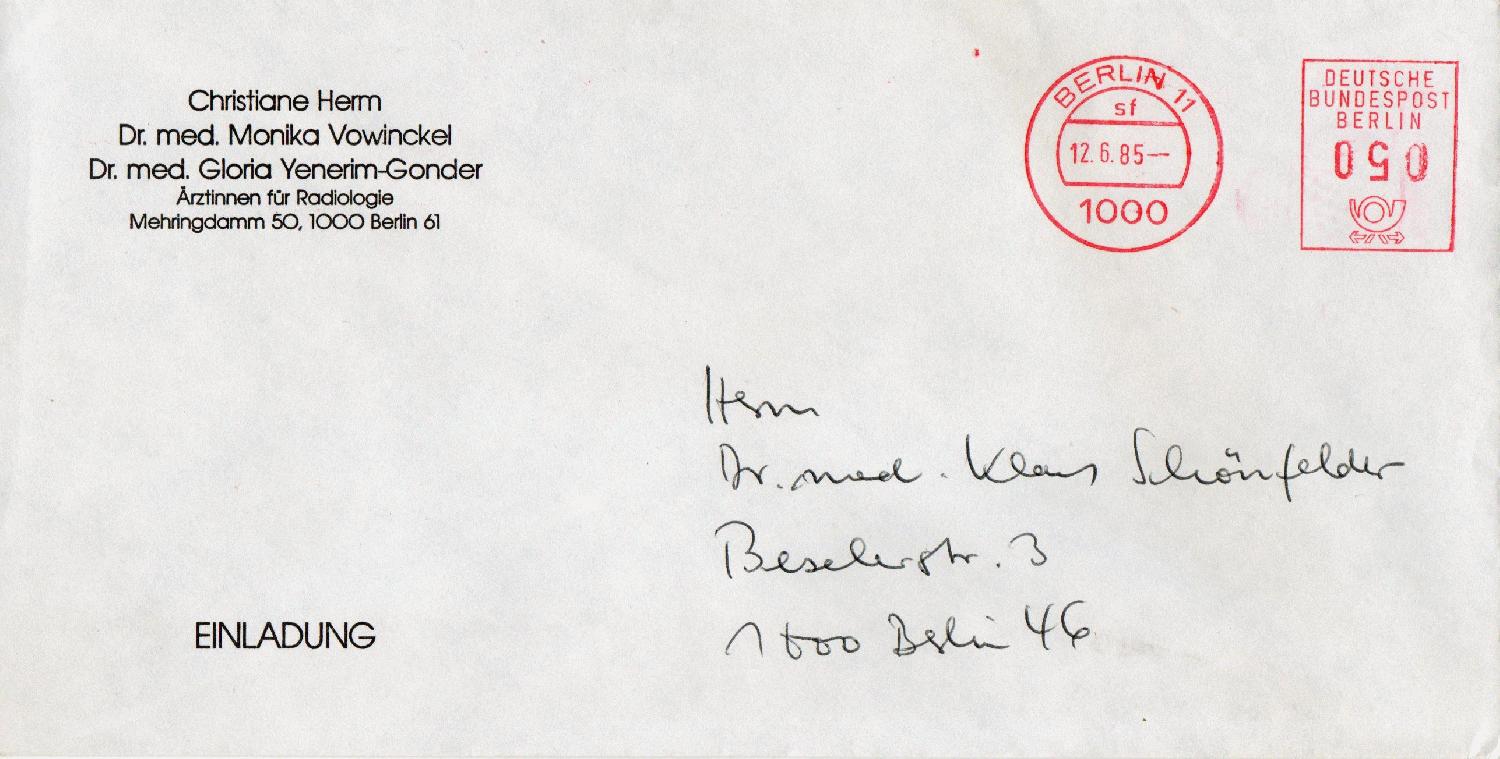 Christiane Herm
Dr. med. Monika Vowinckel
Dr. med. Gloria Yenerim-Gonder
Ärztinnen für Radiologie
Mehringdamm 50, 1000 Berlin 61
BERLIN 11
sf
12.6.85—
1000
DEUTSCHE
BUNDESPOST
BERLIN
050
Herrn
Dr. med. Klaus Schönfelder
Beselerstr. 3
1000 Berlin 46
EINLADUNG